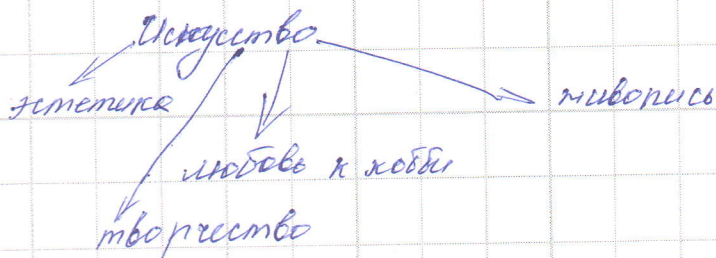 Искусство
эстетика
живопись
любовь к хобби
творчество